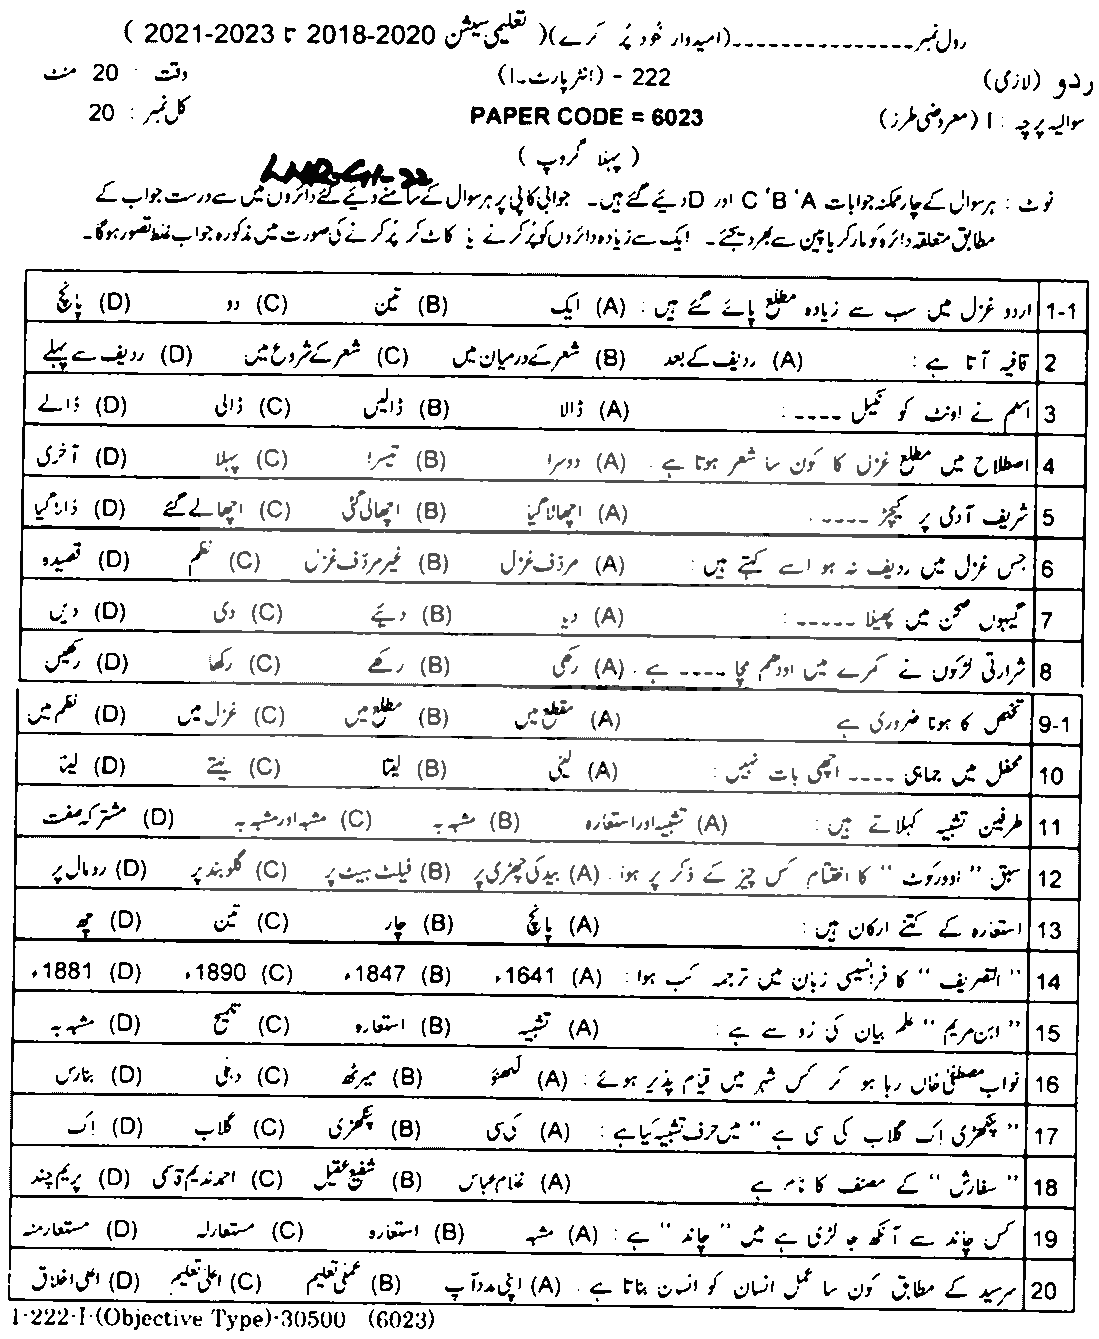 رول نمبر ـــــــــــــــ (امیدوار خود پُر کرے) ( تعلیمی سیشن 2020-2018 تا 2023-2021 )
ردو (لازمی) 222 - (انٹر پارٹ-I) وقت : 20 منٹ
سوالیہ پرچہ : I (معروضی طرز) PAPER CODE = 6023 کل نمبر : 20
( پہلا گروپ )
LHR-G1-22
نوٹ : ہر سوال کے چار ممکنہ جوابات A ‘B ‘C اور D دیئے گئے ہیں۔ جوابی کاپی پر ہر سوال کے سامنے دیئے گئے دائروں میں سے درست جواب کے
مطابق متعلقہ دائرہ کو مارکر یا پین سے بھر دیجئے۔ ایک سے زیادہ دائروں کو پُر کرنے یا کاٹ کر پُر کرنے کی صورت میں مذکورہ جواب غلط تصور ہوگا۔
1-1 اردو غزل میں سب سے زیادہ مطلع پائے گئے ہیں : (A) ایک (B) تین (C) دو (D) پانچ
2 قافیہ آتا ہے : (A) ردیف کے بعد (B) شعر کے درمیان میں (C) شعر کے شروع میں (D) ردیف سے پہلے
3 اسلم نے اونٹ کو نکیل ---- : (A) ڈالا (B) ڈالیں (C) ڈالی (D) ڈالے
4 اصطلاح میں مطلع غزل کا کون سا شعر ہوتا ہے ۔ (A) دوسرا (B) تیسرا (C) پہلا (D) آخری
5 شریف آدمی پر کیچڑ ----- : (A) اچھالا گیا (B) اچھالی گئی (C) اچھالے گئے (D) ڈالا گیا
6 جس غزل میں ردیف نہ ہو اسے کہتے ہیں : (A) مردّف غزل (B) غیر مردّف غزل (C) نظم (D) قصیدہ
7 گیہوں صحن میں پھیلا ----- : (A) دیا (B) دیئے (C) دی (D) دیں
8 شرارتی لڑکوں نے کمرے میں اودھم مچا ---- ہے ۔ (A) رکھی (B) رکھے (C) رکھا (D) رکھیں
9-1 تخلص کا ہونا ضروری ہے (A) مقطع میں (B) مطلع میں (C) غزل میں (D) نظم میں
10 محفل میں جماہی ---- اچھی بات نہیں : (A) لینی (B) لیتا (C) لیتے (D) لینا
11 طرفین تشبیہ کہلاتے ہیں : (A) تشبیہ اور استعارہ (B) مشبہ بہ (C) مشبہ اور مشبہ بہ (D) مشترکہ صفت
12 سبق " اوورکوٹ " کا اختتام کس چیز کے ذکر پر ہوا : (A) بید کی چھڑی پر (B) فیلٹ ہیٹ پر (C) گلوبند پر (D) رومال پر
13 استعارہ کے کتنے ارکان ہیں : (A) پانچ (B) چار (C) تین (D) چھ
14 " التصریف " کا فرانسیسی زبان میں ترجمہ کب ہوا : (A) 1641ء (B) 1847ء (C) 1890ء (D) 1881ء
15 " ابن مریم " علم بیان کی رُو سے ہے : (A) تشبیہ (B) استعارہ (C) تلمیح (D) مشبہ بہ
16 نواب مصطفٰی خاں رہا ہو کر کس شہر میں قیام پذیر ہوئے : (A) لکھنؤ (B) میرٹھ (C) دہلی (D) بنارس
17 " پنکھڑی اِک گلاب کی سی ہے " میں حرف تشبیہ کیا ہے : (A) کی سی (B) پنکھڑی (C) گلاب (D) اِک
18 " سفارش " کے مصنف کا نام ہے (A) غلام عباس (B) شفیع عقیل (C) احمد ندیم قاسمی (D) پریم چند
19 کس چاند سے آنکھ جا لڑی ہے میں " چاند " ہے : (A) مشبہ (B) استعارہ (C) مستعارلہ (D) مستعارمنہ
20 سرسید کے مطابق کون سا عمل انسان کو انسان بناتا ہے ۔ (A) اپنی مدد آپ (B) عملی تعلیم (C) اعلیٰ تعلیم (D) اعلیٰ اخلاق
1-222-I-(Objective Type)-30500 (6023)